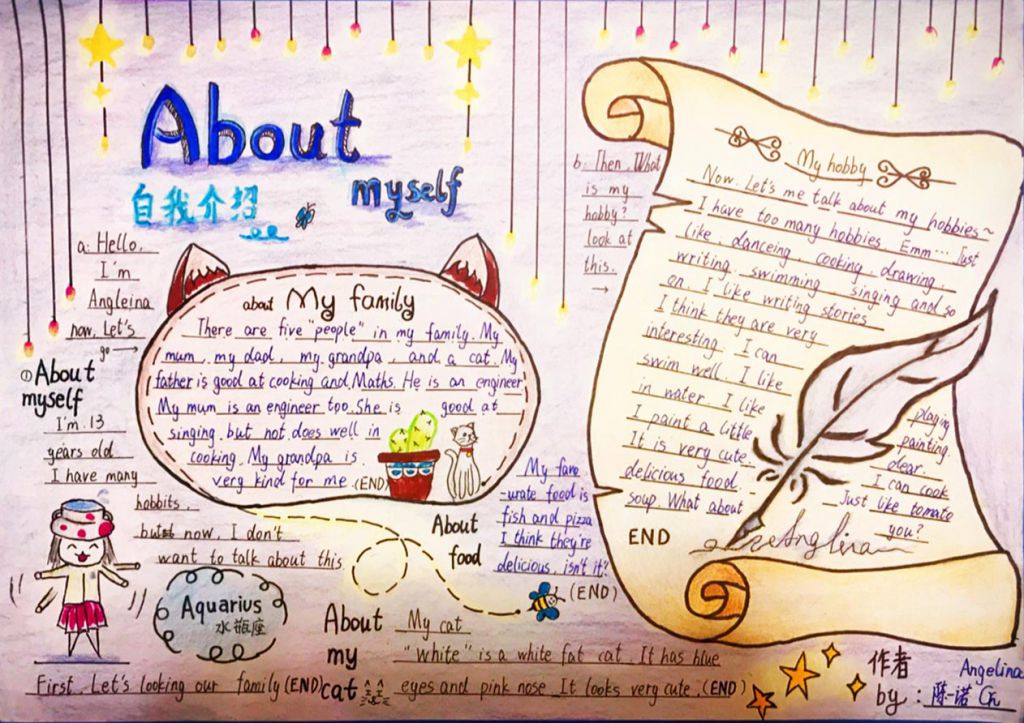 About
myself
自我介绍
a. Hello.
I'm
Angleina
now, Let's
go →
① About
myself
I'm 13
years old
I have many
hobbits.
but now, I don't
want to talk about this
Aquarius
水瓶座
First. Let's looking our family (END)
about My family
There are five "people" in my family. My
mum, my dad, my grandpa, and a cat. My
father is good at cooking and Maths. He is an engineer
My mum is an engineer too. She is good at
singing, but not does well in
cooking. My grandpa is
very kind for me. (END)
About
food
My favo
-urate food is
fish and pizza
I think they're
delicious, isn't it?
(END)
About
my
cat
My cat
"White" is a white fat cat. It has blue
eyes and pink nose. It looks very cute. (END)
b. Then. What
is my
hobby?
look at
this.
→
My hobby
Now. Let's me talk about my hobbies~
I have too many hobbies. Emm... Just
like, danceing, cooking, drawing.
writing, swimming, singing and so
on. I like writing stories
I think they are very
interesting. I can
swim well. I like playing
in water. I like painting.
I paint a little dear.
It is very cute. I can cook
delicious food. Just like tomato
soup. What about you?
END
Anglina
作者
by:
Angelina
陈一诺